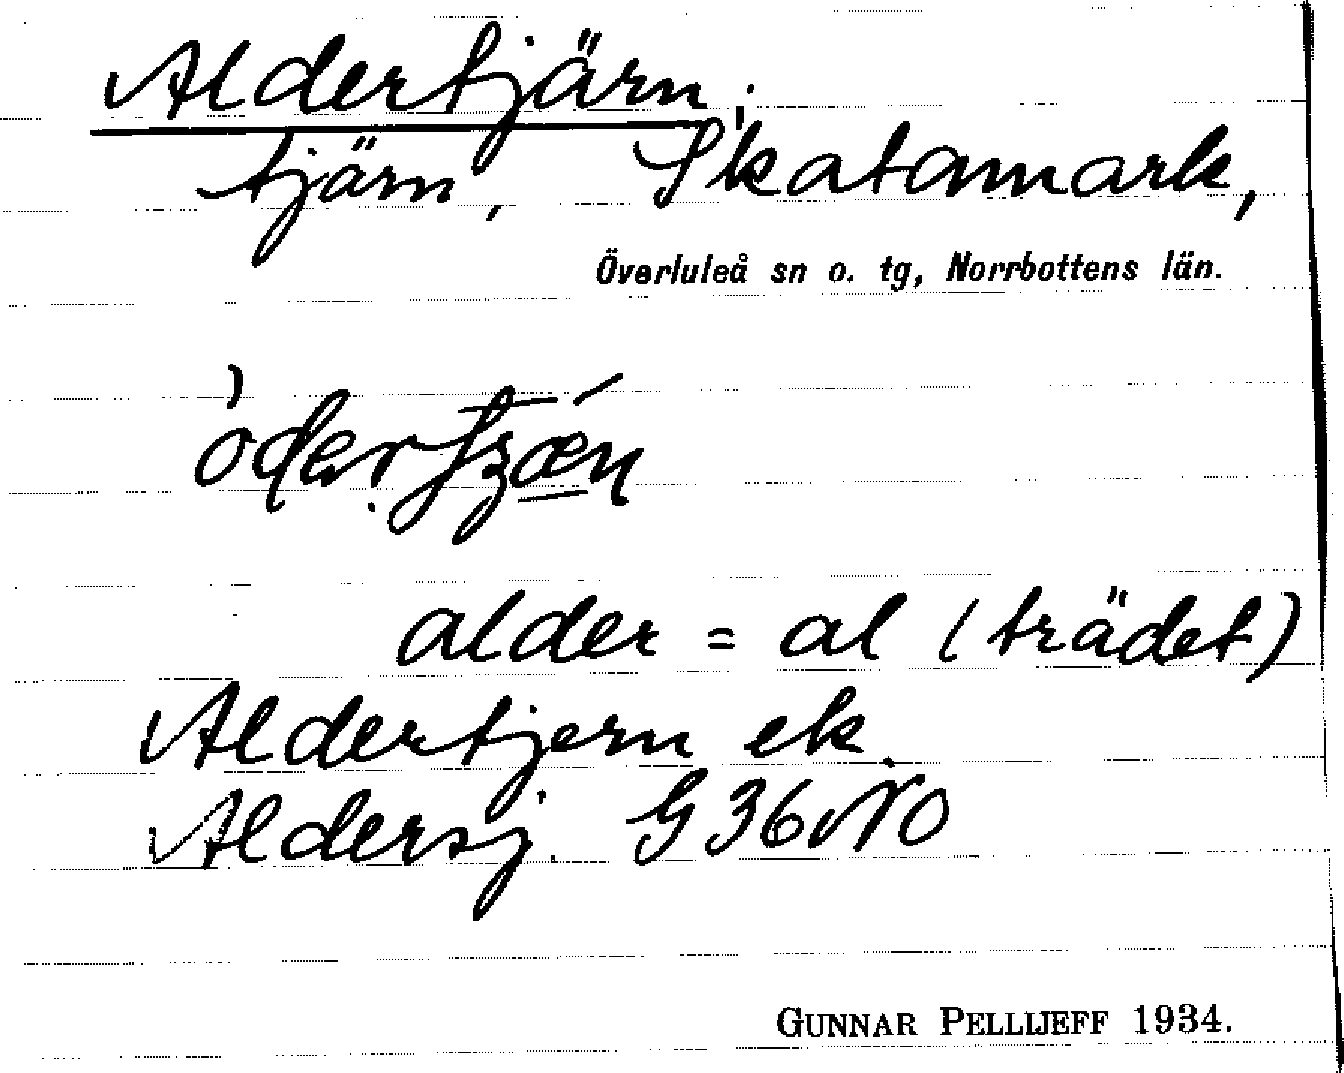 Aldertjärn;
tjärn, Skatamark,
Överluleå sn o. tg, Norrbottens län.
alder = al (trädet)
Aldertjern ek.
Aldersj. G 36 NO
GUNNAR PELLIJEFF 1934.